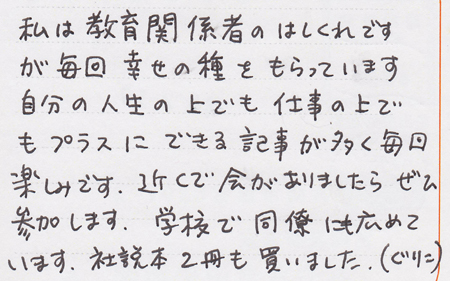 私は教育関係者のはしくれです
が毎回 幸せの種をもらっています
自分の人生の上でも仕事の上で
もプラスにできる記事が多く毎回
楽しみです. 近くで会がありましたらぜひ
参加します. 学校で同僚にも広めて
います. 社説本2冊も買いました.(ぐりこ)